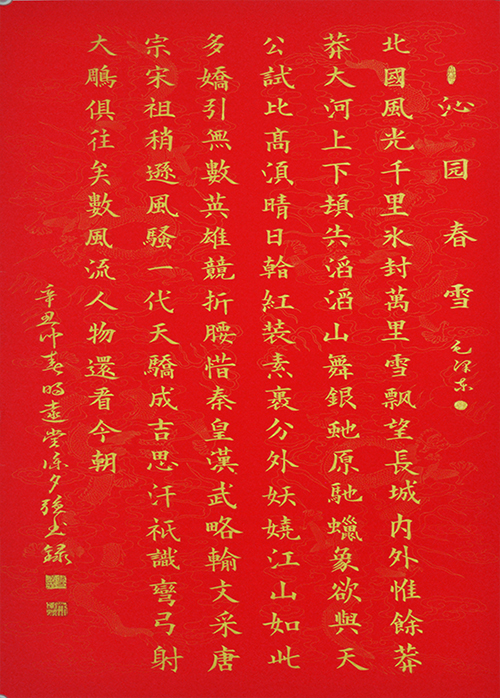 沁园春雪 毛泽东
北國風光千里氷封萬里雪飄望長城内外惟餘莽
莽大河上下頓失滔滔山舞銀虵原馳蠟象欲與天
公試比高湏晴日看紅装素裹分外妖嬈江山如此
多嬌引無數英雄競折腰惜秦皇漢武略輸文采唐
宗宋祖稍遜風騷一代天驕成吉思汗祇識彎弓射
大鵰俱往矣數風流人物還看今朝
辛丑仲春明遠堂陈夕书録